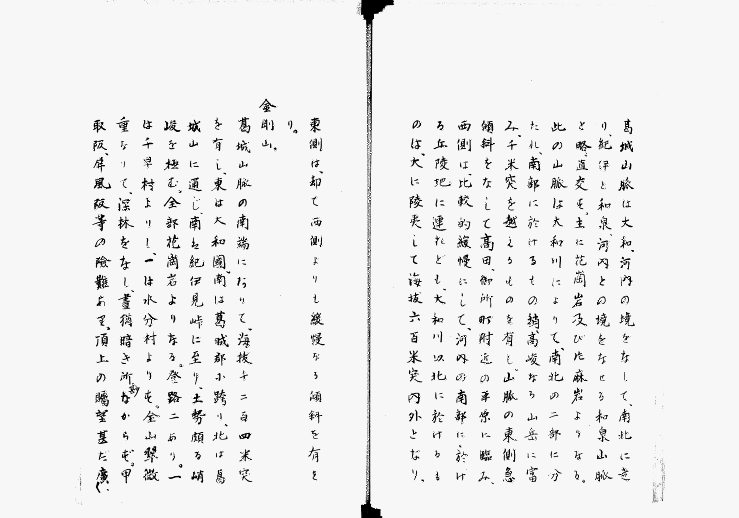 葛城山脈は大和、河内の境をなして、南北に走
り、紀伊と和泉、河内との境をなせる和泉山脈
と略直交す。主に花崗岩及び片麻岩よりなる。
此の山脈は大和川によりて、南北の二部に分
たれ、南部に於けるもの稍高峻なる山岳に富
み、千米突を越えるものを有し、山脈の東側急
傾斜をなして高田、御所町附近の平原に臨み、
西側は、比較的緩慢にして、河内の南部に於け
る丘陵地に連れども、大和川以北に於けるも
のは、大に陵夷して海抜六百米突内外となり、
東側は、却て西側よりも緩慢なる傾斜を有せ
り。
金剛山。
葛城山脈の南端にありて、海抜千二百四米突
を有し、東は大和國、南は葛城郡に跨り、北は葛
城山に通じ、南は紀伊見峠に至り、土勢頗る峭
峻を極む。全部花崗岩よりなる。登路二あり。一
は千早村よりし、一は水分村よりす。全山翠微
重なりて、深林をなし、晝猶暗き所少なからず。甲
取阪、屏風阪等の險難あり。頂上の矚望甚だ廣く、